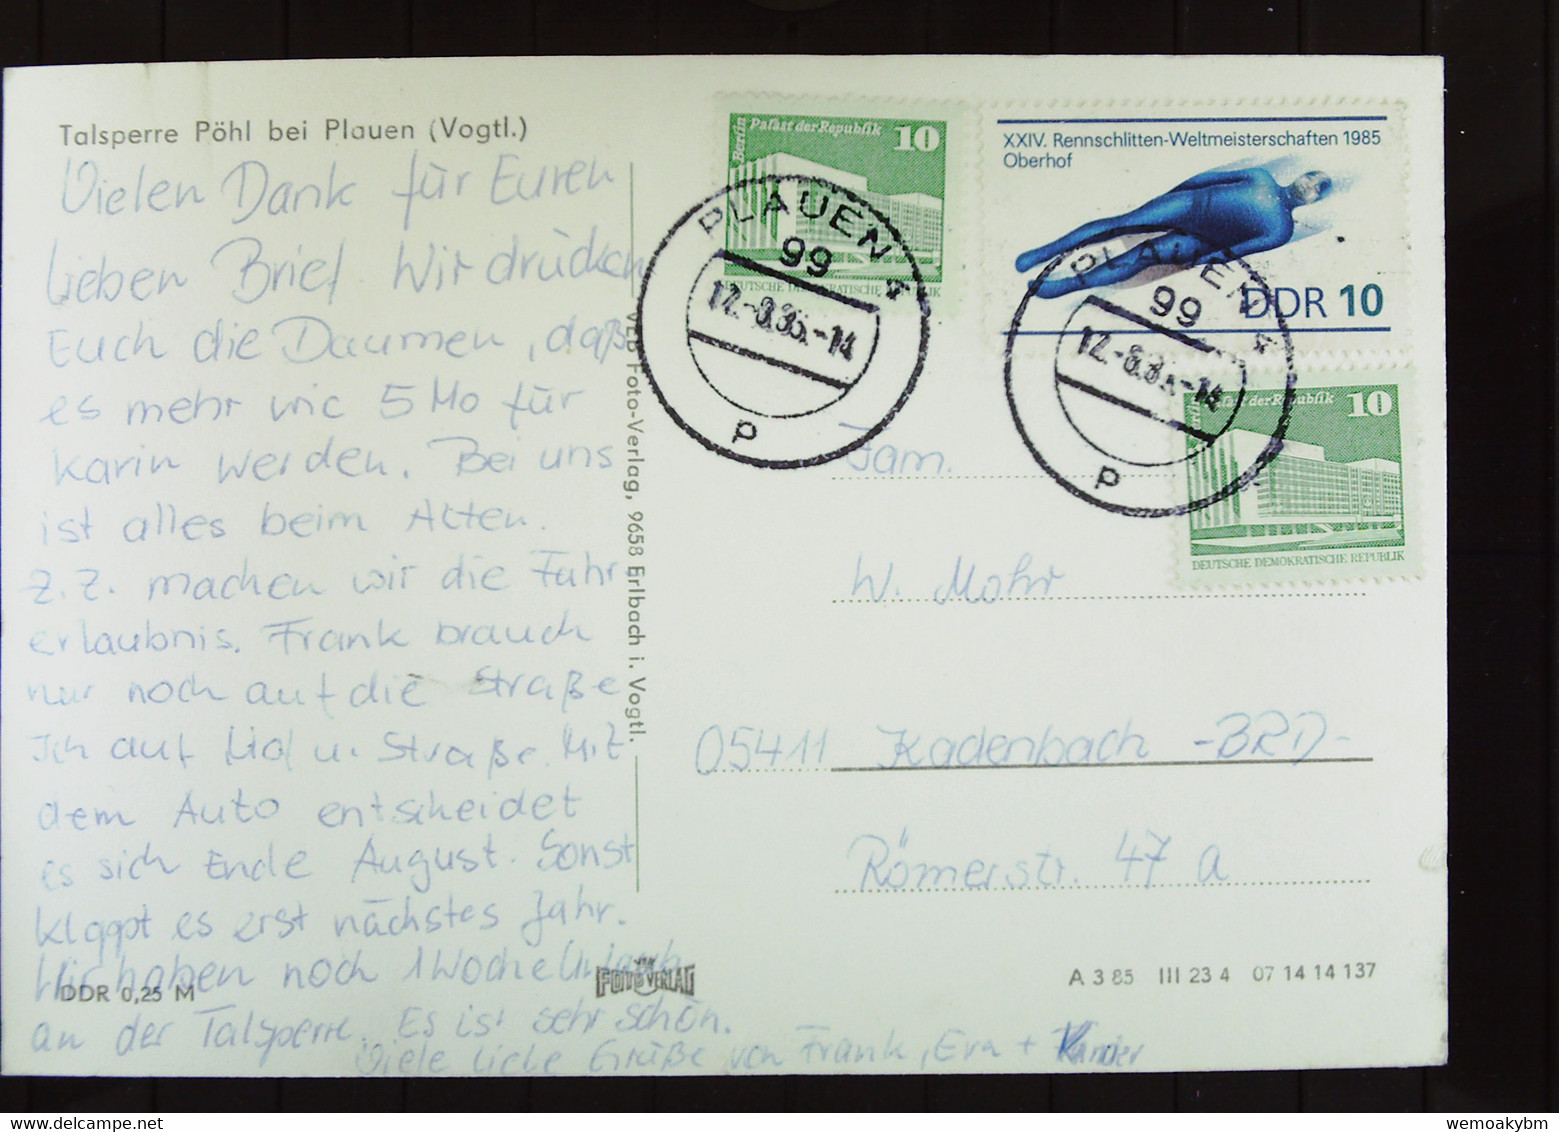 Talsperre Pöhl bei Plauen (Vogtl.)
Vielen Dank für Euren
lieben Brief Wir drücken
Euch die Daumen, daß
es mehr wie 5 Mo für
Karin werden. Bei uns
ist alles beim Alten.
z.Z. machen wir die Fahr
erlaubnis. Frank brauch
nur noch auf die Straße
Ich auf u. Straße. Mit
dem Auto entscheidet
es sich Ende August. Sonst
klappt es erst nächstes Jahr.
Wir haben noch 1 Woche Urlaub
an der Talsperre. Es ist sehr schön.
Viele liebe Grüße von Frank, Eva + Kinder
DDR 0,25 M
VEB Foto-Verlag, 9658 Erlbach i. Vogtl.
FOTO VERLAG
Berlin Palast der Republik 10
DEUTSCHE DEMOKRATISCHE REPUBLIK
PLAUEN 4
99
-14
p
XXIV. Rennschlitten-Weltmeisterschaften 1985
Oberhof
DDR 10
PLAUEN 4
99
-14
p
Berlin Palast der Republik 10
DEUTSCHE DEMOKRATISCHE REPUBLIK
Fam.
W. Mohr
05411 Kadenbach -BRD-
Römerstr. 47 a
A 3 85 III 23 4 07 14 14 137
wemoakybm